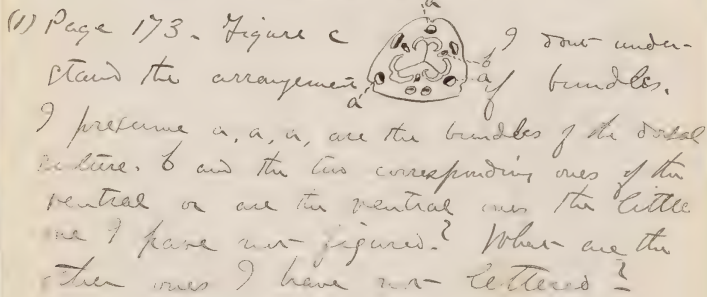 (1) Page 173. Figure c
a
I don't under-
stand the arrangement of bundles.
b
a
a
I presume a, a, a, are the bundles of the dorsal
suture. b and the two corresponding ones of the
ventral or are the ventral ones the little
one I have not figured? What are the
other ones I have not lettered?